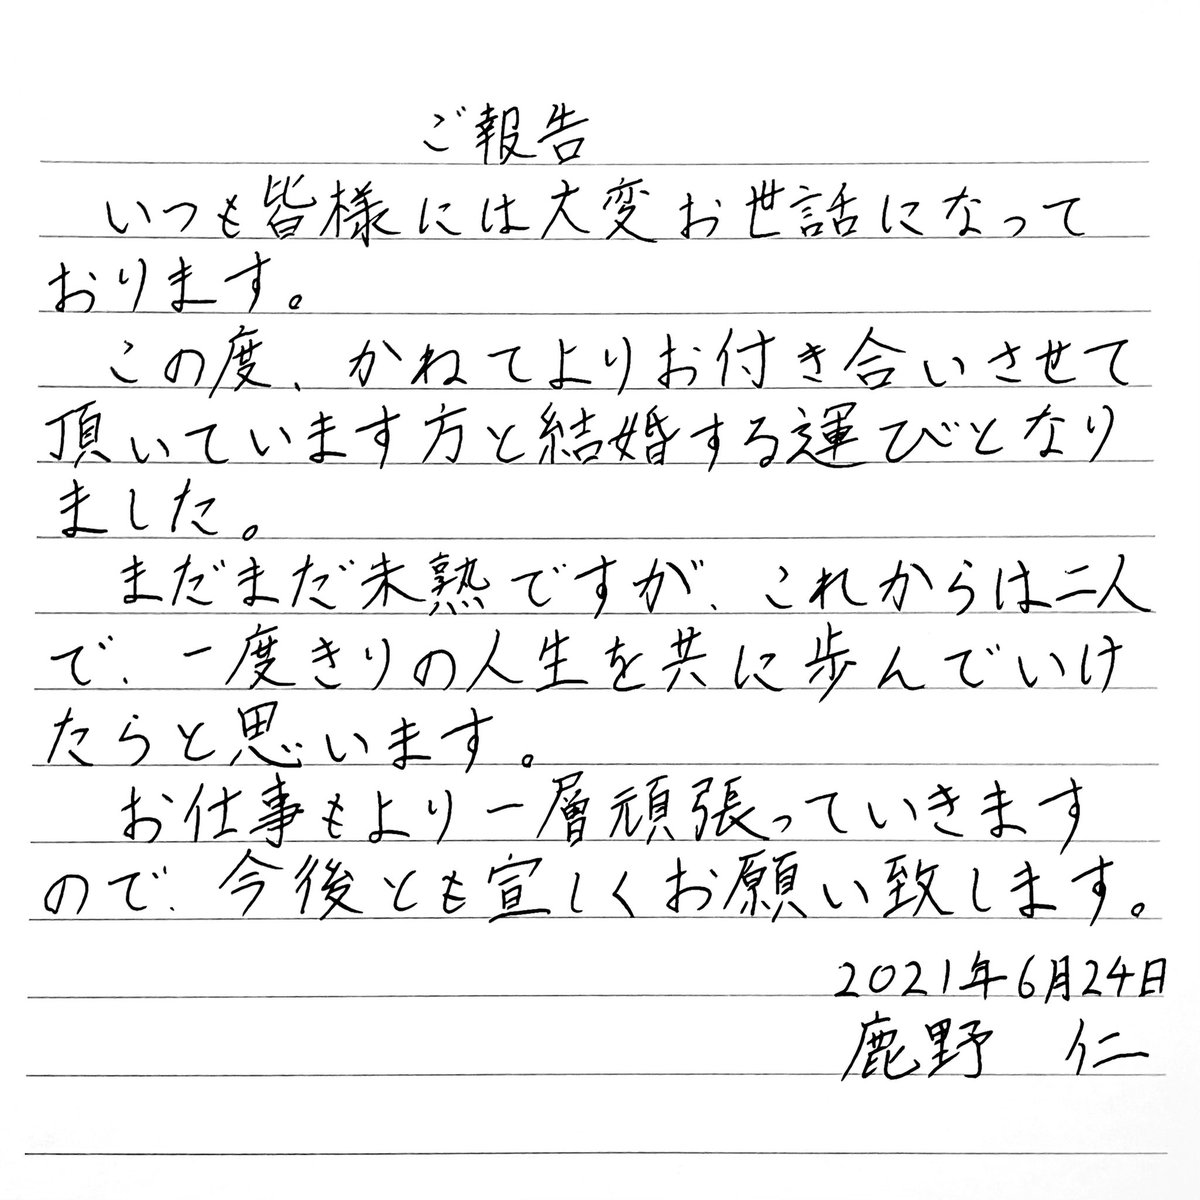 ご報告
いつも皆様には大変お世話になって
おります。
この度、かねてよりお付き合いさせて
頂いています方と結婚する運びとなり
ました。
まだまだ未熟ですが、これからは二人
で、一度きりの人生を共に歩んでいけ
たらと思います。
お仕事もより一層頑張っていきます
ので、今後とも宜しくお願い致します。
2021年6月24日
鹿野 仁